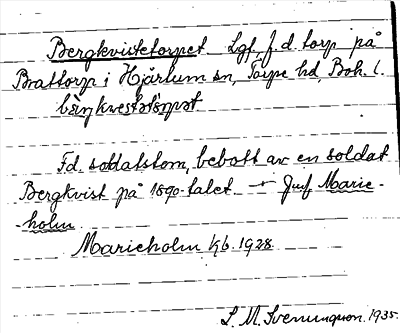 Bergkvistetorpet Lgf, f.d. torp på
Brattorp i Hjärtum sn, Torpe hd, Boh. l.
F.d. soldatstom, bebott av en soldat
Bergkvist på 1890-talet. → Jmf Marie-
holm
Marieholm Kb. 1928
L. M. Svenungson. 1935.